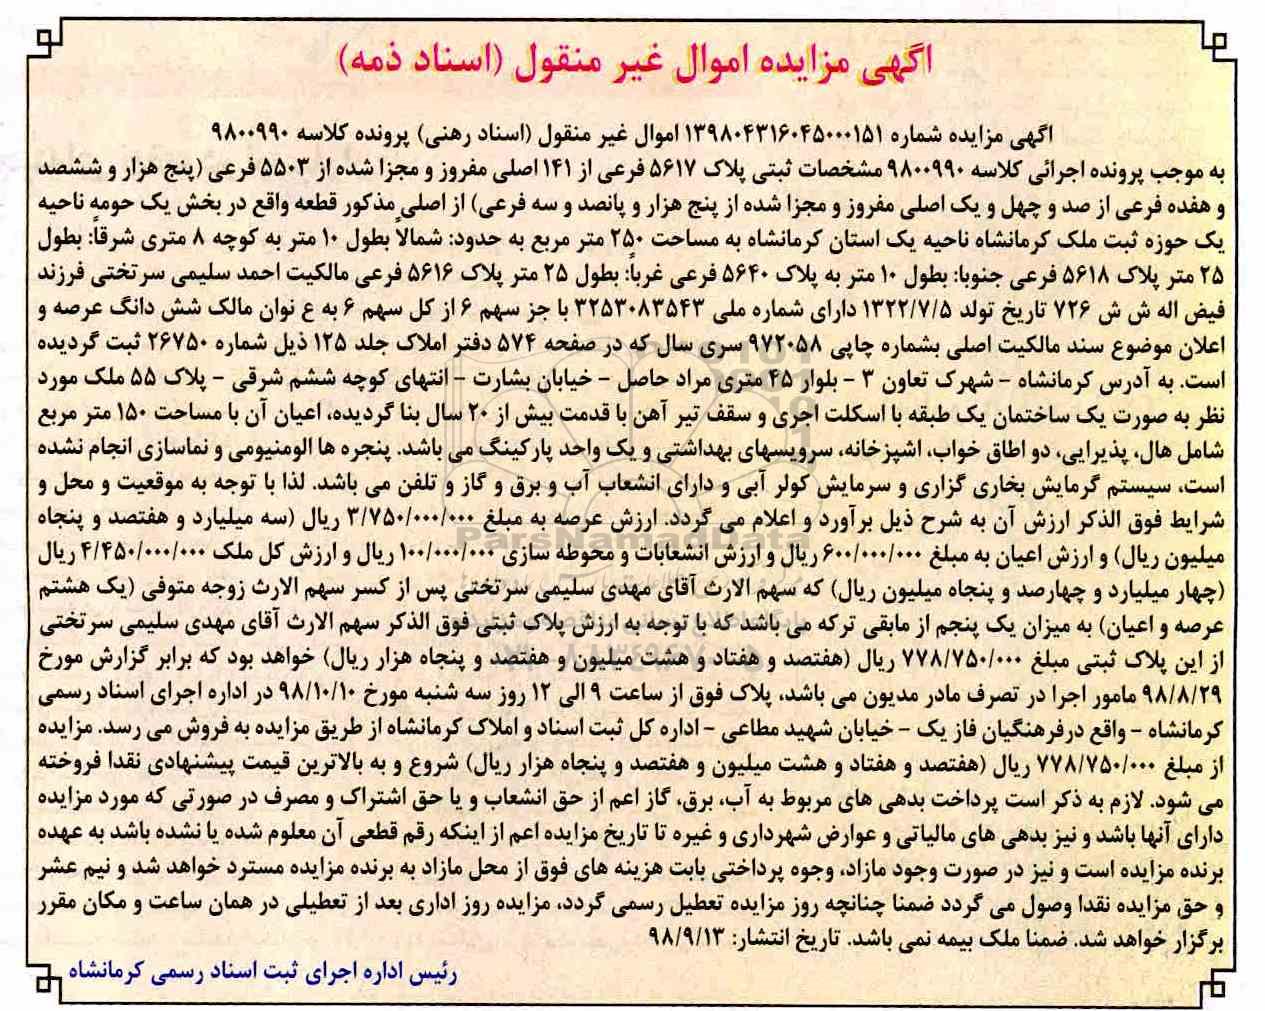 آگهی مزایده اموال غیر منقول (اسناد ذمه)
آگهی مزایده شماره ۱۳۹۸۰۴۳۱۶۰۴۵۰۰۰۱۵۱ اموال غیر منقول (اسناد رهنی) پرونده کلاسه ۹۸۰۰۹۹۰
به موجب پرونده اجرائی کلاسه ۹۸۰۰۹۹۰ مشخصات ثبتی پلاک ۵۶۱۷ فرعی از ۱۴۱ اصلی مفروز و مجزا شده از ۵۵۰۳ فرعی (پنج هزار و ششصد
و هفده فرعی از صد و چهل و یک اصلی مفروز و مجزا شده از پنج هزار و پانصد و سه فرعی) از اصلی مذکور قطعه واقع در بخش یک حومه ناحیه
یک حوزه ثبت ملک کرمانشاه ناحیه یک استان کرمانشاه به مساحت ۲۵۰ متر مربع به حدود: شمالاً بطول ۱۰ متر به کوچه ۸ متری شرقاً: بطول
۲۵ متر پلاک ۵۶۱۸ فرعی جنوبا: بطول ۱۰ متر به پلاک ۵۶۴۰ فرعی غرباً: بطول ۲۵ متر پلاک ۵۶۱۶ فرعی مالکیت احمد سلیمی سرتختی فرزند
فیض اله ش ش ۷۲۶ تاریخ تولد ۱۳۲۲/۷/۵ دارای شماره ملی ۳۲۵۳۰۸۳۵۴۳ با جز سهم ۶ از کل سهم ۶ به ع نوان مالک شش دانگ عرصه و
اعلان موضوع سند مالکیت اصلی بشماره چاپی ۹۷۲۰۵۸ سری سال که در صفحه ۵۷۴ دفتر املاک جلد ۱۲۵ ذیل شماره ۲۶۷۵۰ ثبت گردیده
است. به آدرس کرمانشاه - شهرک تعاون ۳ - بلوار ۴۵ متری مراد حاصل - خیابان بشارت - انتهای کوچه ششم شرقی - پلاک ۵۵ ملک مورد
نظر به صورت یک ساختمان یک طبقه با اسکلت اجری و سقف تیر آهن با قدمت بیش از ۲۰ سال بنا گردیده، اعیان آن با مساحت ۱۵۰ متر مربع
شامل هال، پذیرایی، دو اطاق خواب، اشپزخانه، سرویسهای بهداشتی و یک واحد پارکینگ می باشد. پنجره ها الومنیومی و نماسازی انجام نشده
است، سیستم گرمایش بخاری گزاری و سرمایش کولر آبی و دارای انشعاب آب و برق و گاز و تلفن می باشد. لذا با توجه به موقعیت و محل و
شرایط فوق الذکر ارزش آن به شرح ذیل برآورد و اعلام می گردد. ارزش عرصه به مبلغ ۳/۷۵۰/۰۰۰/۰۰۰ ریال (سه میلیارد و هفتصد و پنجاه
میلیون ریال) و ارزش اعیان به مبلغ ۶۰۰/۰۰۰/۰۰۰ ریال و ارزش انشعابات و محوطه سازی ۱۰۰/۰۰۰/۰۰۰ ریال و ارزش کل ملک ۴/۴۵۰/۰۰۰/۰۰۰ ریال
(چهار میلیارد و چهارصد و پنجاه میلیون ریال) که سهم الارث آقای مهدی سلیمی سرتختی پس از کسر سهم الارث زوجه متوفی (یک هشتم
عرصه و اعیان) به میزان یک پنجم از مابقی ترکه می باشد که با توجه به ارزش پلاک ثبتی فوق الذکر سهم الارث آقای مهدی سلیمی سرتختی
از این پلاک ثبتی مبلغ ۷۷۸/۷۵۰/۰۰۰ ریال (هفتصد و هفتاد و هشت میلیون و هفتصد و پنجاه هزار ریال) خواهد بود که برابر گزارش مورخ
۹۸/۸/۲۹ مامور اجرا در تصرف مادر مدیون می باشد، پلاک فوق از ساعت ۹ الی ۱۲ روز سه شنبه مورخ ۹۸/۱۰/۱۰ در اداره اجرای اسناد رسمی
کرمانشاه - واقع درفرهنگیان فاز یک - خیابان شهید مطاعی - اداره کل ثبت اسناد و املاک کرمانشاه از طریق مزایده به فروش می رسد. مزایده
از مبلغ ۷۷۸/۷۵۰/۰۰۰ ریال (هفتصد و هفتاد و هشت میلیون و هفتصد و پنجاه هزار ریال) شروع و به بالاترین قیمت پیشنهادی نقدا فروخته
می شود. لازم به ذکر است پرداخت بدهی های مربوط به آب، برق، گاز اعم از حق انشعاب و یا حق اشتراک و مصرف در صورتی که مورد مزایده
دارای آنها باشد و نیز بدهی های مالیاتی و عوارض شهرداری و غیره تا تاریخ مزایده اعم از اینکه رقم قطعی آن معلوم شده یا نشده باشد به عهده
برنده مزایده است و نیز در صورت وجود مازاد، وجوه پرداختی بابت هزینه های فوق از محل مازاد به برنده مزایده مسترد خواهد شد و نیم عشر
و حق مزایده نقدا وصول می گردد ضمنا چنانچه روز مزایده تعطیل رسمی گردد، مزایده روز اداری بعد از تعطیلی در همان ساعت و مکان مقرر
برگزار خواهد شد. ضمنا ملک بیمه نمی باشد. تاریخ انتشار: ۹۸/۹/۱۳
رئیس اداره اجرای ثبت اسناد رسمی کرمانشاه
ParsNamadData